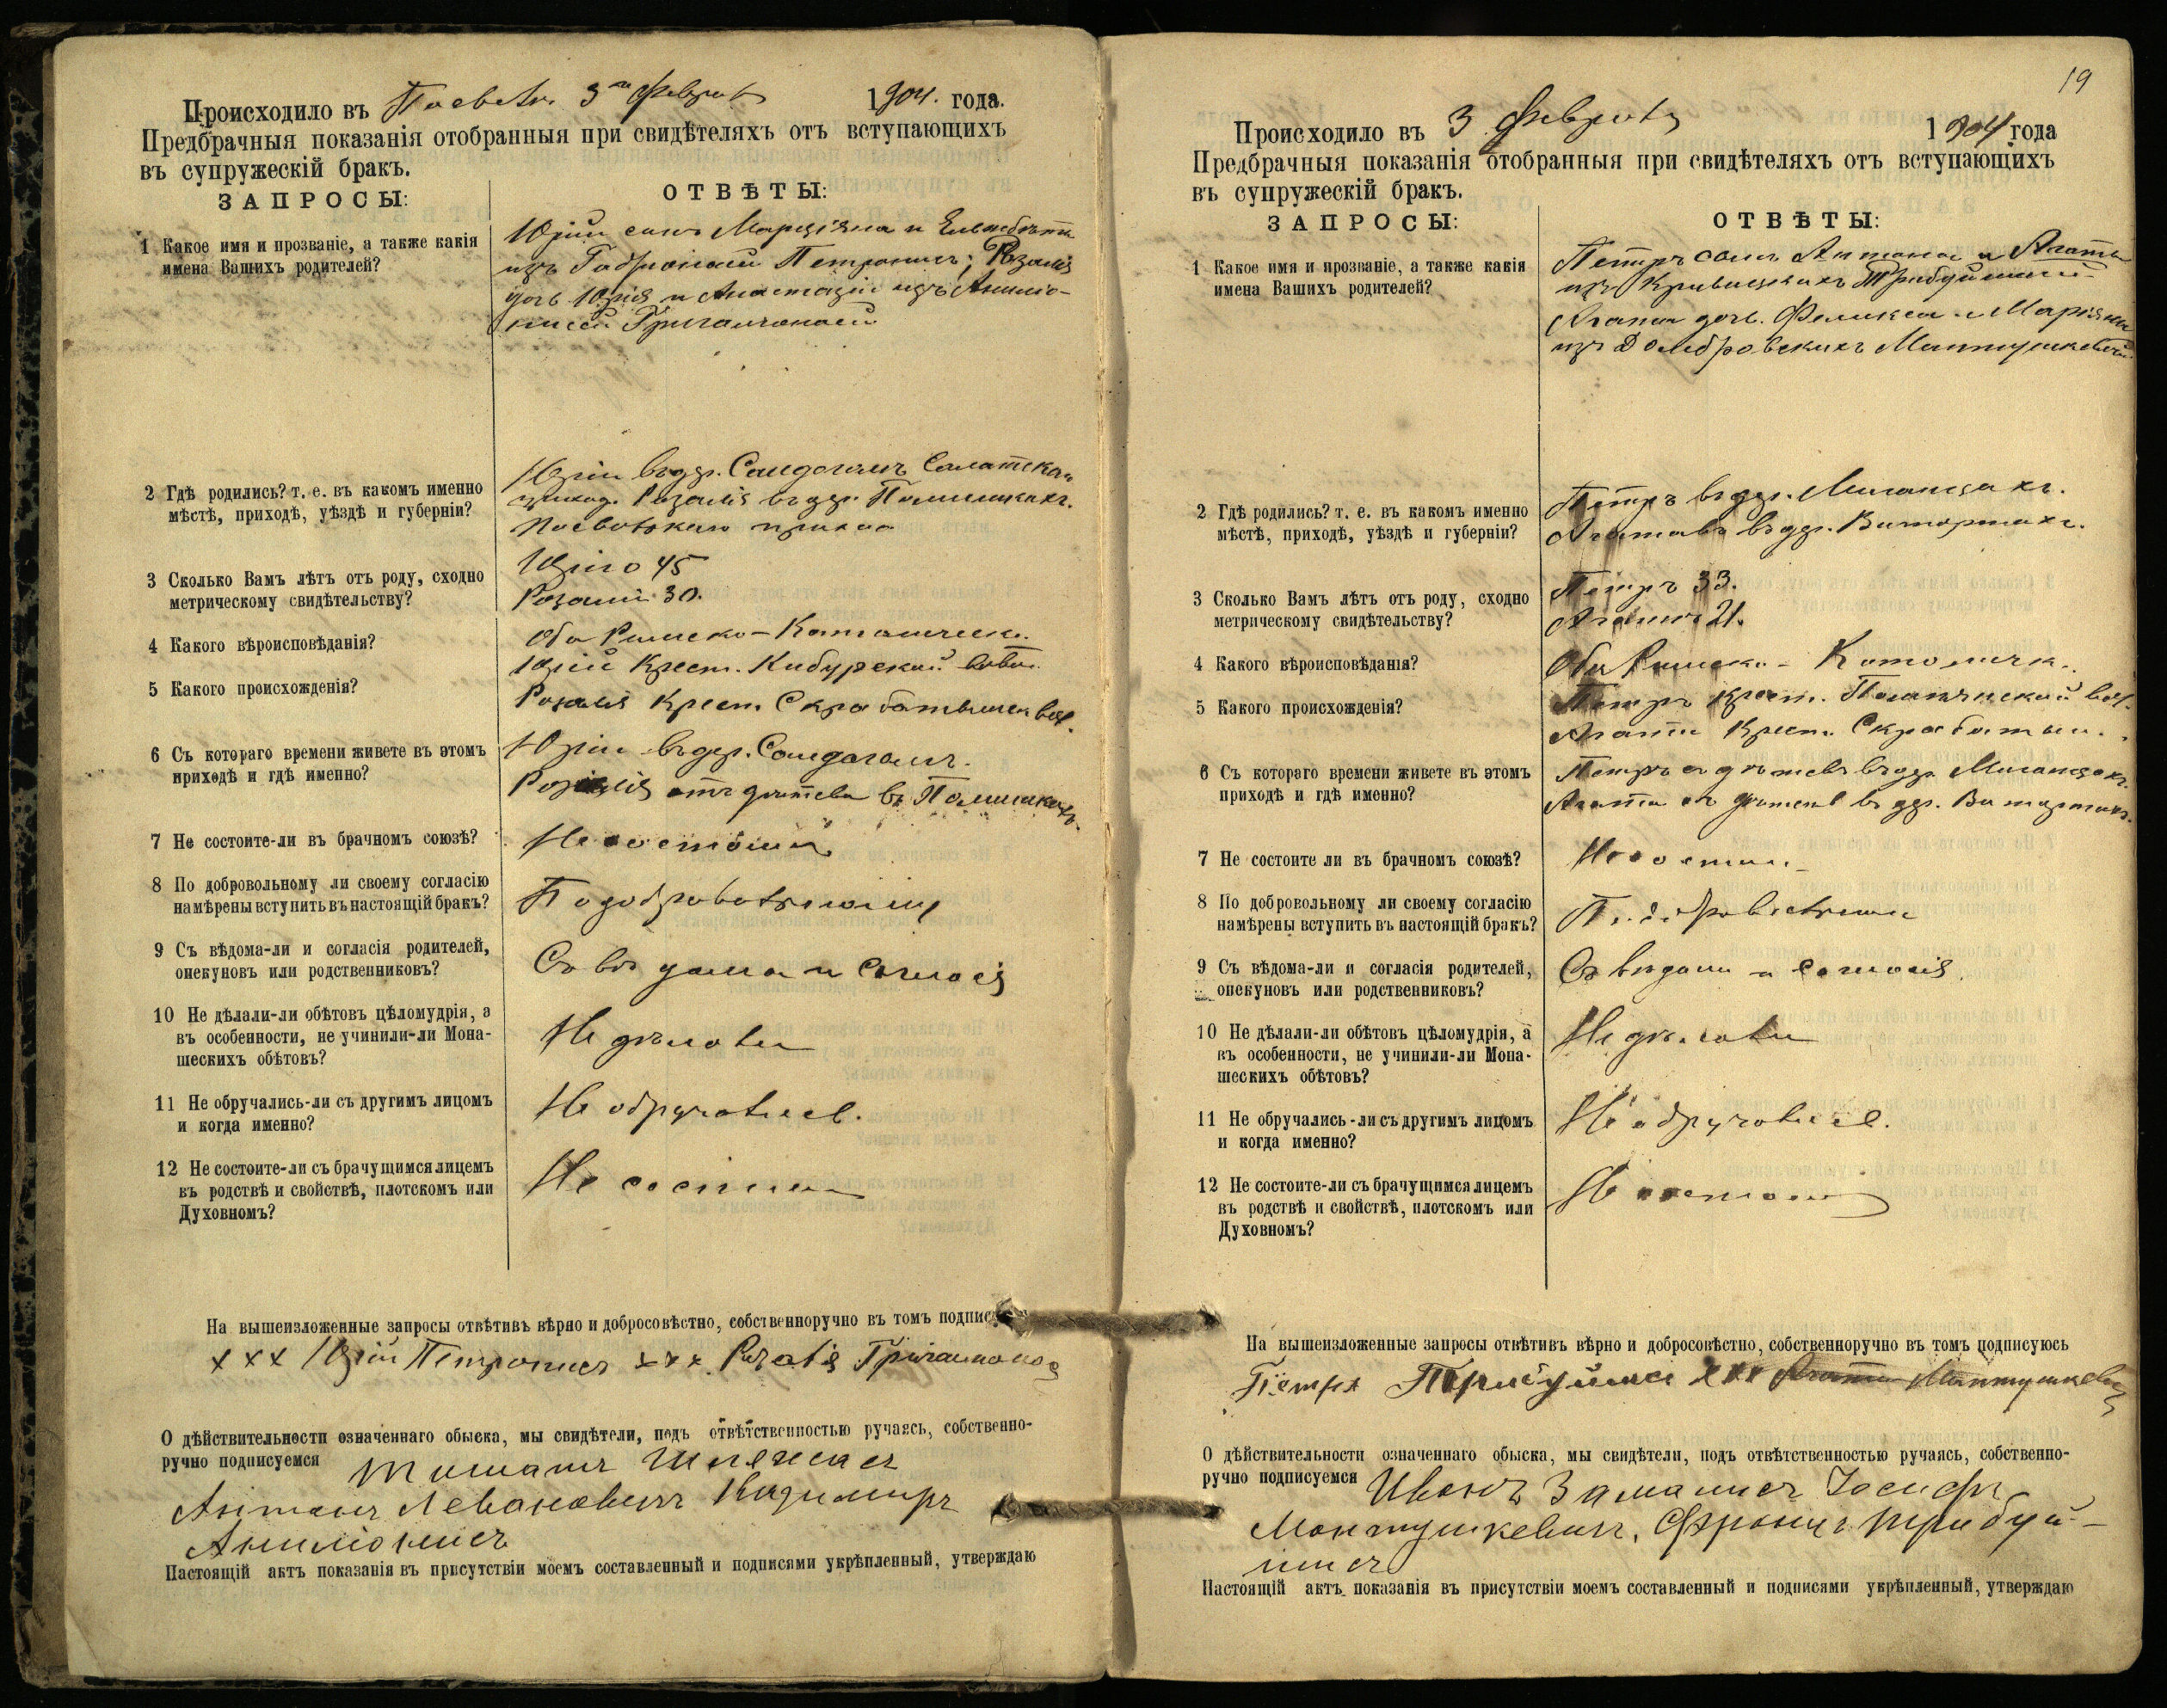 Происходило въ 3го Февраля 1904. года.
Предбрачныя показанія отобранныя при свидѣтеляхъ отъ вступающихъ
въ супружескій бракъ.
ЗАПРОСЫ:
ОТВѢТЫ:
1 Какое имя и прозваніе, а также какія
имена Вашихъ родителей?
Юрій сынъ и
изъ Розалія
дочь Юрія и Анастазіи изъ
2 Гдѣ родились? т. е. въ какомъ именно
мѣстѣ, приходѣ, уѣздѣ и губерніи?
Юрій въ дер.
приход. Розалія въ дер.
3 Сколько Вамъ лѣтъ отъ роду, сходно
метрическому свидѣтельству?
Юрію 45
Розаліи 30.
4 Какого вѣроисповѣданія?
Оба Римско-Католическ.
5 Какого происхожденія?
Юрій Крест. Кибурской вол.
Розалія Крест. вол.
6 Съ котораго времени живете въ этомъ
приходѣ и гдѣ именно?
Юрій въ дер.
Розалія отъ въ
7 Не состоите-ли въ брачномъ союзѣ?
Не состоимъ
8 По добровольному ли своему согласію
намѣрены вступить въ настоящій бракъ?
По добровольному
9 Съ вѣдома-ли и согласія родителей,
опекуновъ или родственниковъ?
Съ вѣдома и согласія
10 Не дѣлали-ли обѣтовъ цѣломудрія, а
въ особенности, не учинили-ли Мона-
шескихъ обѣтовъ?
Не дѣлали
11 Не обручались-ли съ другимъ лицомъ
и когда именно?
Не обручались.
12 Не состоите-ли съ брачущимся лицемъ
въ родствѣ и свойствѣ, плотскомъ или
Духовномъ?
Не состоимъ
На вышеизложенные запросы отвѣтивъ вѣрно и добросовѣстно, собственноручно въ томъ подпису
ххх Юрій Петронисъ ххх Розалія
О дѣйствительности означеннаго обыска, мы свидѣтели, подъ отвѣтственностью ручаясь, собственно-
ручно подписуемся
Антонъ Левановичъ
Настоящій актъ показанія въ присутствіи моемъ составленный и подписями укрѣпленный, утверждаю
19
Происходило въ 3 Февраля 1904 года
Предбрачныя показанія отобранныя при свидѣтеляхъ отъ вступающихъ
въ супружескій бракъ.
ЗАПРОСЫ:
ОТВѢТЫ:
1 Какое имя и прозваніе, а также какія
имена Вашихъ родителей?
Петръ сынъ Антона и Агаты
изъ
Агата дочь Феликса и Маріяны
изъ Домбровскихъ
2 Гдѣ родились? т. е. въ какомъ именно
мѣстѣ, приходѣ, уѣздѣ и губерніи?
Петръ въ дер.
въ дер.
3 Сколько Вамъ лѣтъ отъ роду, сходно
метрическому свидѣтельству?
Петръ 33.
21.
4 Какого вѣроисповѣданія?
Оба Римско-Католическ.
5 Какого происхожденія?
Петръ крест. вол.
Агата Крест.
6 Съ котораго времени живете въ этомъ
приходѣ и гдѣ именно?
Петръ въ дер.
Агата въ дер.
7 Не состоите ли въ брачномъ союзѣ?
Не состоимъ
8 По добровольному ли своему согласію
намѣрены вступить въ настоящій бракъ?
По добровольному
9 Съ вѣдома-ли и согласія родителей,
опекуновъ или родственниковъ?
Съ вѣдома и согласія
10 Не дѣлали-ли обѣтовъ цѣломудрія, а
въ особенности, не учинили-ли Мона-
шескихъ обѣтовъ?
Не дѣлали
11 Не обручались-ли съ другимъ лицомъ
и когда именно?
Не обручались.
12 Не состоите-ли съ брачущимся лицемъ
въ родствѣ и свойствѣ, плотскомъ или
Духовномъ?
Не состоимъ
На вышеизложенные запросы отвѣтивъ вѣрно и добросовѣстно, собственноручно въ томъ подписуюсь
ххх Агата
О дѣйствительности означеннаго обыска, мы свидѣтели, подъ отвѣтственностью ручаясь, собственно-
ручно подписуемся Иванъ Іосифъ
Настоящій актъ показанія въ присутствіи моемъ составленный и подписями укрѣпленный, утверждаю